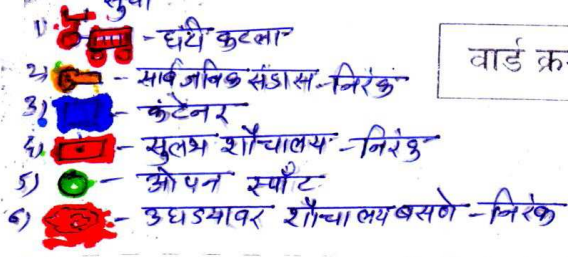 सुची
१) - घंटी कुटला
२) - सार्वजनिक संडास - निरंक
३) - कंटेनर
४) - सुलभ शौचालय - निरंक
५) - ओपन स्पॉट
६) - उघडयावर शौचालय बसणे - निरंक
वार्ड क्र